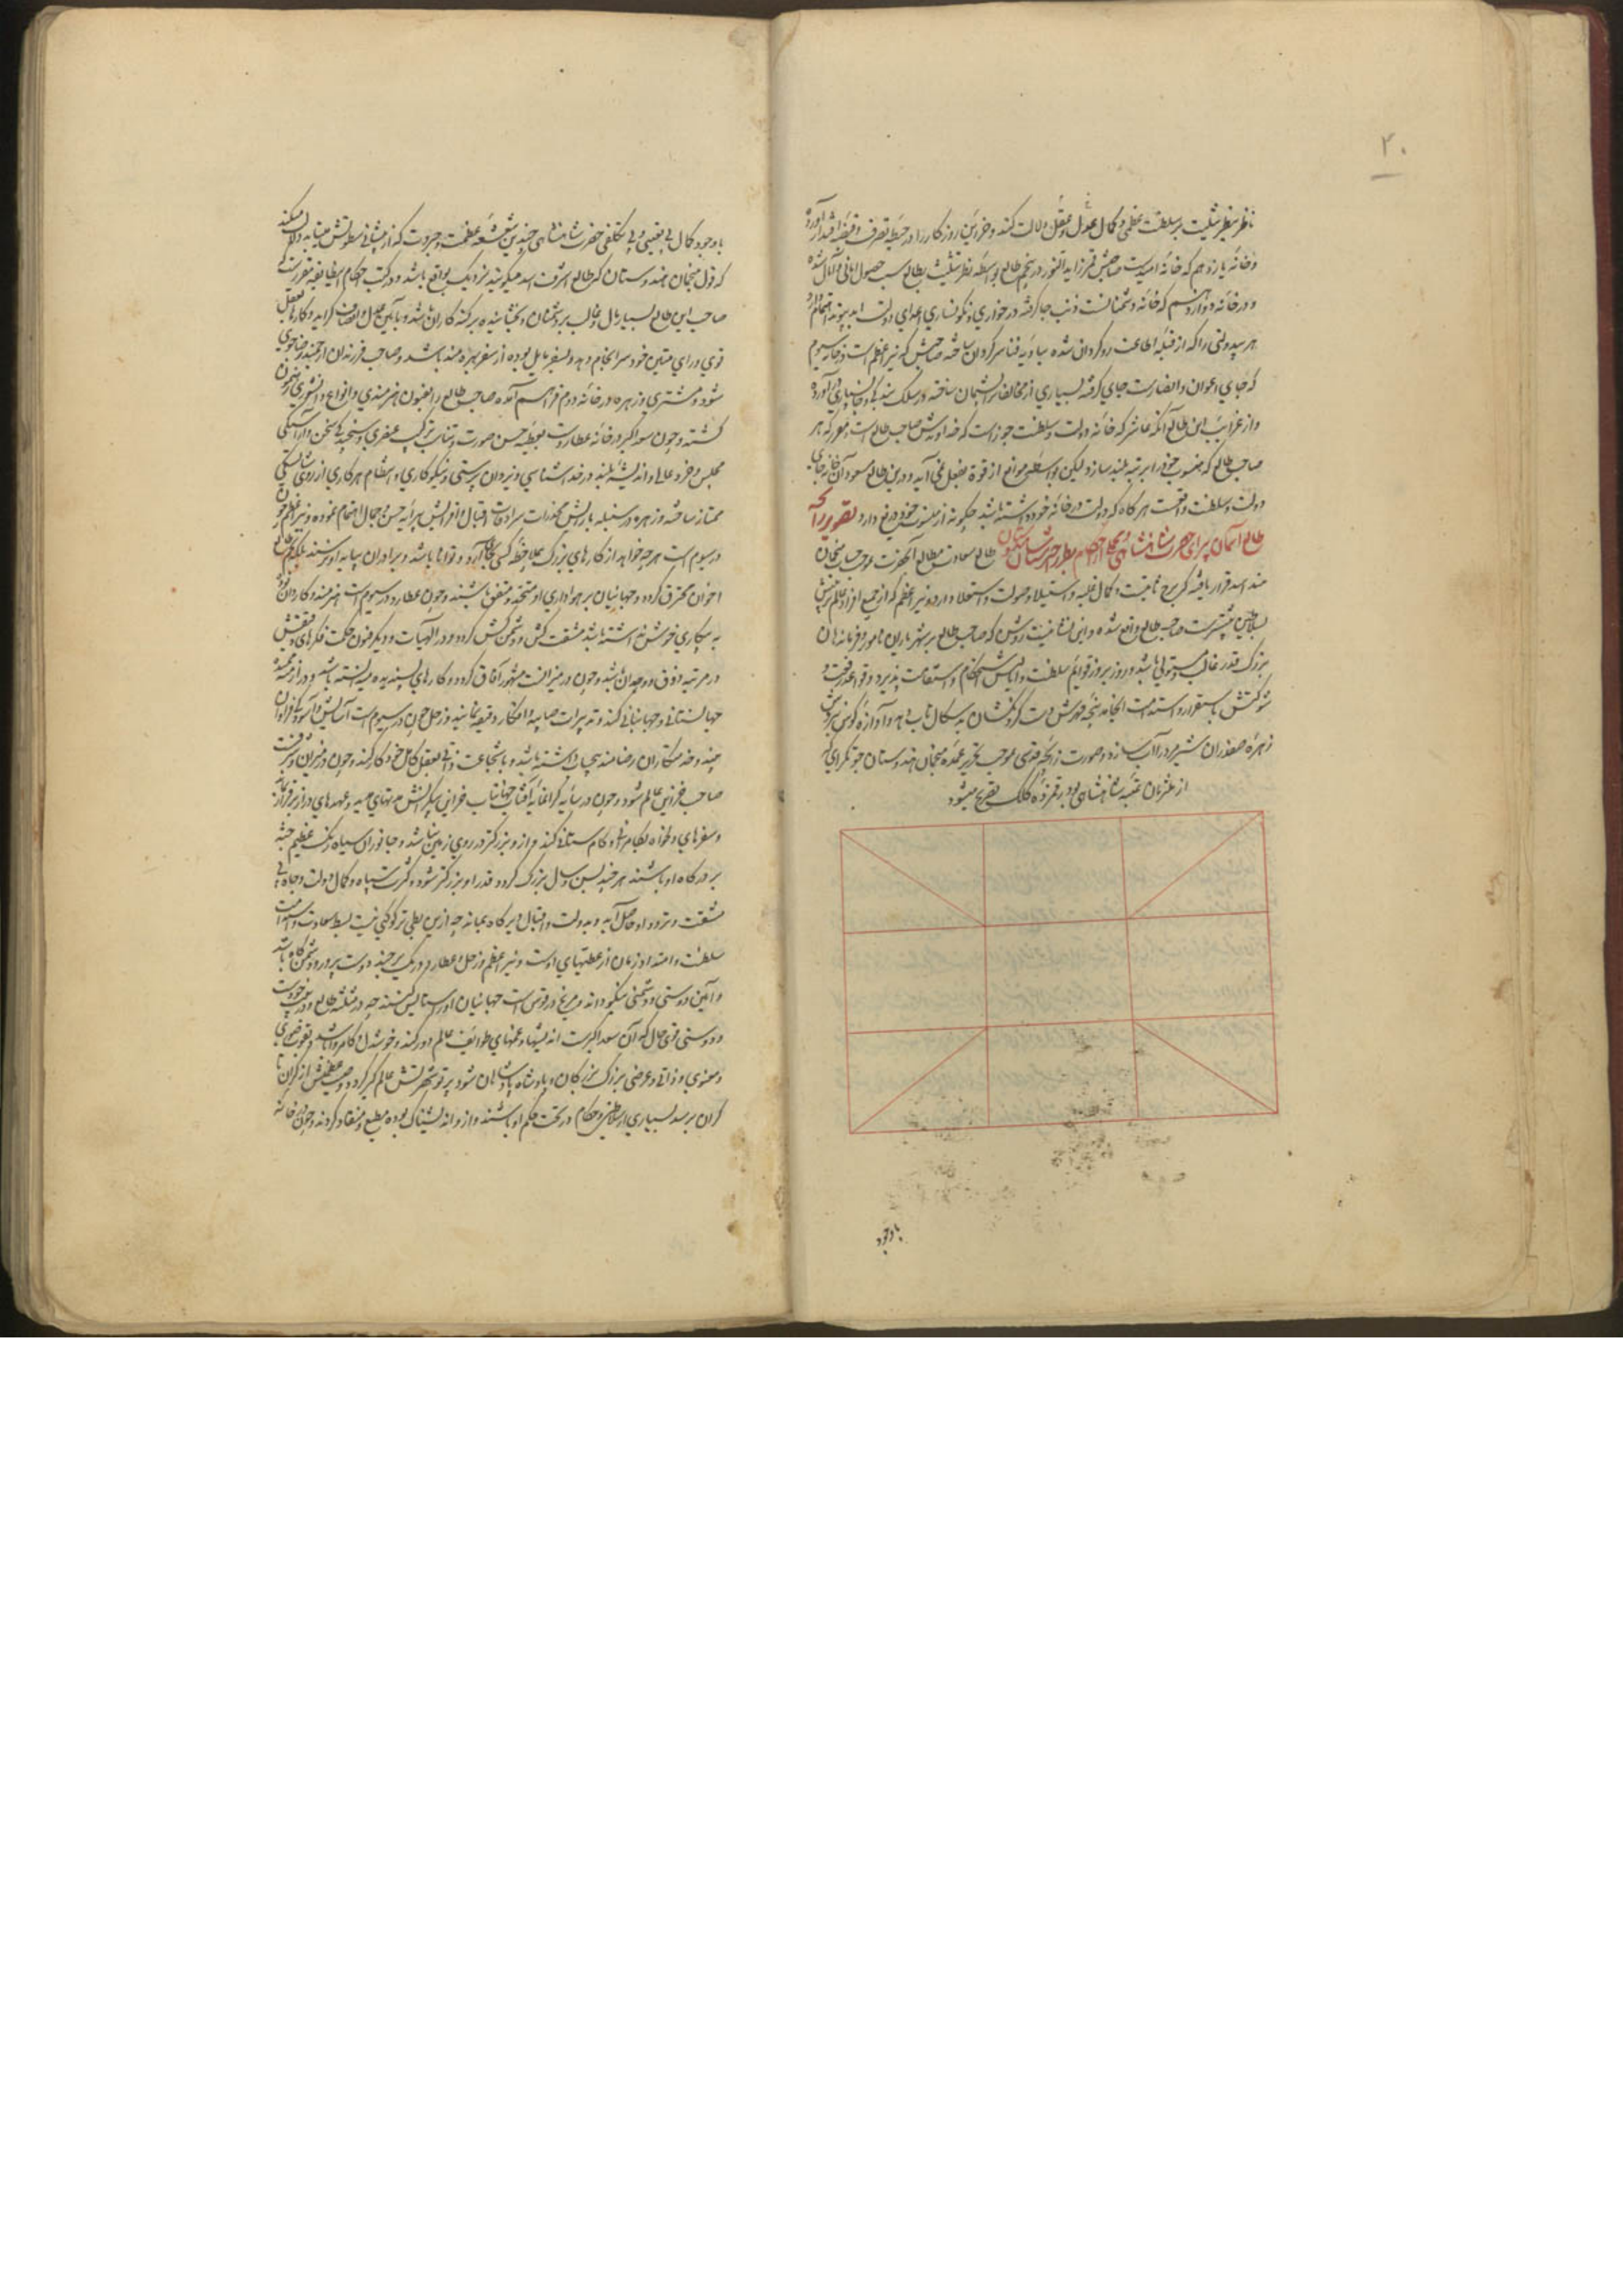 ۲۰
ناظر بنظر تثلیث بر سلطنت عظمی و کمال عدل و عقل دلالت کند و خزاین روزکار را در حیطه تصرف و قبضه اقتدار آورد
و خانه یازدهم که خانه امیدست صاحبش قمر زاید النور در پنجم طالع بواسطه نظر تثلیث بطالع سبب حصول امانی و آمال شده
و در خانه دوازدهم که خانه دشمنانست ذنب جا کرفته در خواری و نکونساری اعدای دولت ابد پیوند اهتمام دارد
هر بیدولتی را که از قبله اطاعت روکردان شده ببادیه فنا سرکردان ساخته صاحبش که نیر اعظم است در خانه سیوم
که جای اعوان و انصارست جای کرفته بسیاری از مخالفان پشیمان ساخته در سلک بندکی و جانسپاری در آورده
و از غرایب این طالع آنکه عاشر که خانه دولت و سلطنت جوزاست که خداوندش صاحب طالع است و مقررست که هر
صاحب طالع که منسوب خود را بمرتبه بلند سازد لیکن بواسطه موانع از قوة بفعل نمی آید و درین طالع مسعود آن خانه جای
دولت و سلطنت واقعست هر کاه که دولت در خانه خود داشته باشد چکونه از منسوب خود دریغ دارد تصویر زایچه
طالع آسمان پیرای حضرت شاهنشاهی طالع سعادت مطالع آنحضرت بموجب حساب منجمان
هند اسد قرار یافته که برج ثابتست و کمال غلبه و استیلا و صولت و استعلا دارد و نیر اعظم که از جمیع افراد عالم تربیتش
بسلاطین بیشترست صاحب طالع واقع شده و این نشانیست روشن که صاحب طالع بر شهریاران نامور و فرماندهان
بزرک قدر غالب و مستولی باشد و روز بروز قوایم سلطنت و اساس استحکام و استقامت پذیرد و قواعد رفعت و
شوکتش باستقرار و استدامت انجامد پنجه قهرش دست کردنکشان بدسکال تاب دهد و آوازه کوس نبردش
زهره صفدران شیر مرد را آب سازد و صورت زایچه قدسی بموجب تحریر عمده منجمان هندوستان جوتکرای که
از ملتزمان عتبه شاهنشاهی بود برقمزده کلک تصریح میشود
باوجود
باوجود کمال بی تعینی و بی تکلفی حضرت شاهنشاهی چندین شعشعه عظمت و جبروت که از پیشانی سطوتش میتابد دلالت میکند
که قول منجمان هندوستان که طالع اشرف اسد میکویند نزدیک بواقع باشد و در کتب احکام این طایفه مقررست که
صاحب این طالع بسیار مال و غالب بر دشمنان و بخشاینده بر کنه کاران باشد و بآیین عدل و انصاف کراید و کارها بعقل
قوی و رای متین خود سرانجام دهد و بسفر مایل بوده از سفر بهره مند باشد و صاحب فرزندان ارجمند رضاجوی
شود و مشتری و زهره در خانه دوم فراهم آمده صاحب طالع را بفنون هنرمندی و انواع دانشوری رهنمون
کشته و چون سعد اکبر در خانه عطاردست بعطیه حسن صورت و تناسب ترکیب عنصری و سنجیدکی سخن و آراستکی
مجلس و خرد عالی و اندیشه بلند در خداشناسی و یزدان پرستی و نیکوکاری و انتظام هر کاری از روی شایستکی
ممتاز ساخته و زهره در سنبله بآرایش مخدرات سرادقات اقبال و افزایش پیرایه حسن و جمال اهتمام نموده و نیر اعظم چون
در سیوم است هرچه خواهد از کارهای بزرک بملاحظه کسی بجا آرد و توانا باشد و برادران بپایه او نرسند بلکه نجم طالع
اخوان محترق کردد و جهانیان بر هواداری او متحد و متفق باشند و چون عطارد در سیوم است هنرمند و کاردان بود
به بیکاری خوش نداشته باشد مشقت کش و دشمن کش کردد و در الهیات و دیکر فنون حکمت فکرهای دقیقش
در مرتبه ذوق و وجدان باشد و چون در میزانست مشهور آفاق کردد و کارهای پسندیده شایسته باشد و در لوازم
جهانستانی و جهانبانی کند و تدبیرات صایبه و افکار دقیقه نمایند و زحل چون در سیوم است آسایش و آسودکی فراوان
چند و خدمتکاران رضامند بیحساب داشته باشد و با شجاعت ذاتی بعقل کامل خود کار کند و چون در میزان و شرفست
صاحب خزاین عالم شود و چون در سایه کرانمایه آفتاب جهانتاب خزاین بیکرانش مدتهای مدید و عهدهای دراز برقرار ماند
و سفرهای دلخواه بکامرانی و کام ستانی کند و از و بزرکتر در روی زمین نباشد و جانوران سیاه رنک عظیم جثه
بر درکاه او باشند هر چند بسن و سال بزرک کردد قدر او بزرکتر شود و کثرت سپاه و کمال دولت و جاه بی
مشقت و تردد او حاصل آید و بدولت و اقبال دیرکاه بماند چه ازین بطی تر کوکبی نیست بسط سعادت و استقامت
سلطنت و امتداد زمان از عطیتهای اوست و نیر اعظم و زحل و عطارد در یک برجند دوست پرور و دشمن کاه باشد
و آیین دوستی و دشمنی نیکو داند و مریخ در قوس است جهانیان او را ستایش کنند چه در مثلثه طالع و در بیت دوست
و دوستی قوی حال که آن سعد اکبرست اندیشهای و غمهای طوایف عالم دور کند و خوشدل و کامروا باشد و بقوت صوری
و معنوی و ذاتی و عرضی بزرک بزرکان و پادشاه پادشاهان شود پرتو شهرتش عالمکیر کردد و صیت عظمتش از کران تا
کران برسد بسیاری از سلاطین و حکام در تحت حکم او باشند و از و اندیشناک بوده مطیع و منقاد کردند و چون در خانه